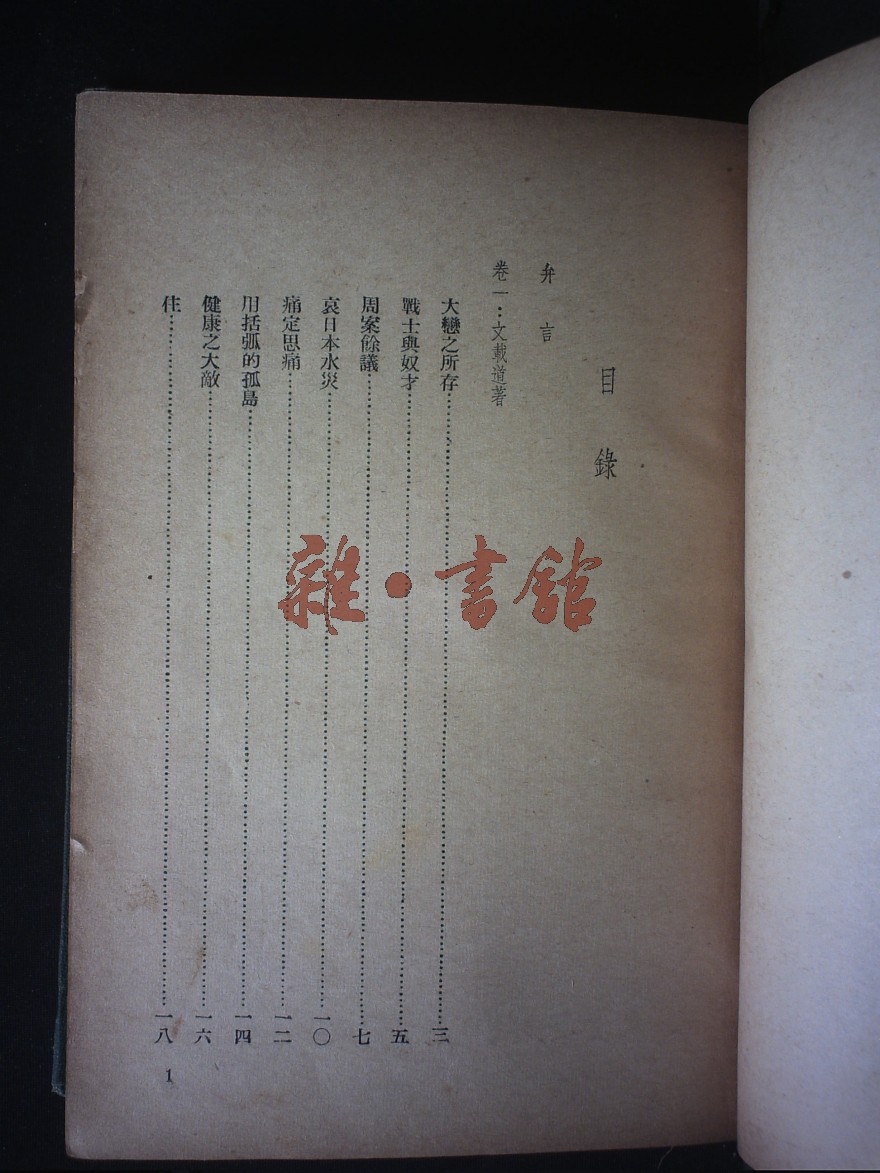 目錄
弁言
卷一：文載道著
大戀之所存……三
戰士與奴才……五
周案餘議……七
哀日本水災……一〇
痛定思痛……一二
用括弧的孤島……一四
健康之大敵……一六
住……一八
1
雜·書館